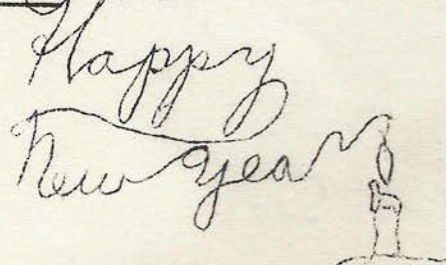 Happy
New Year